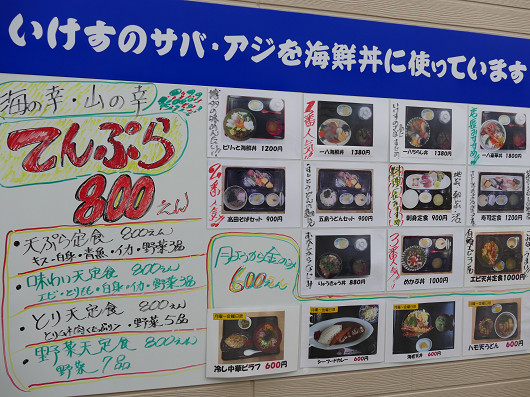 いけすのサバ・アジを海鮮丼に使っています
海の幸・山の幸
てんぷら
800えん
・天ぷら定食 800えん
キス・白身・青魚・イカ・野菜3品
・味わい天定食 800えん
エビ・とりもも・白身・イカ・野菜3品
・とり天定食 800えん
・野菜5品
・野菜天定食 800えん
野菜7品
2番人気!!
ピリっと海鮮丼 1200円
一八海鮮丼 1380円
一八ちらし丼 1380円
一八豪華丼
2番人気!!
高田そばセット 900円
五島うどんセット 900円
刺身定食 900円
寿司定食 1200円
月よう〜金よう
600えん
りゅうきゅう丼 880円
3番人気
めかぶ丼 1000円
エビ天定食 1000円
冷し中華ピラフ 600円
シーフードカレー 600円
海老天丼 600円
ハモ天うどん 600円